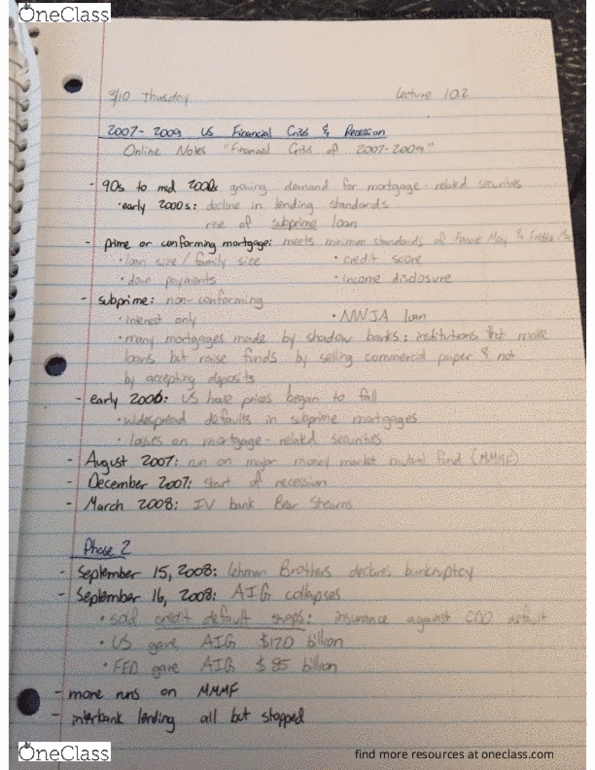 OneClass
find more resources at oneclass.com
3/10 Thursday Lecture 10.2
2007-2009 US Financial Crisis & Recession
Online Notes "Financial Crisis of 2007-2009"
- 90s to mid 2000s growing demand for mortgage-related securities
• early 2000s: decline in lending standards
rise of subprime loan
- prime or conforming mortgage: meets minimum standards of Fannie May & Freddie Mac
• loan size/family size • credit score
• down payments • income disclosure
- subprime: non-conforming
• interest only • NINJA loan
• many mortgages made by shadow banks: institutions that make
loans but raise funds by selling commercial paper & not
by accepting deposits
- early 2006: US house prices began to fall
• widespread defaults in subprime mortgages
• losses on mortgage-related securities
- August 2007: run on major money market mutual fund (MMMF)
- December 2007: start of recession
- March 2008: IV bank Bear Stearns
Phase 2
- September 15, 2008: Lehman Brothers declares bankruptcy
- September 16, 2008: AIG collapses
• sold credit default swaps: insurance against CDO default
• US gave AIG $170 billion
• FED gave AIG $85 billion
- more runs on MMMF
- interbank lending all but stopped
OneClass
find more resources at oneclass.com